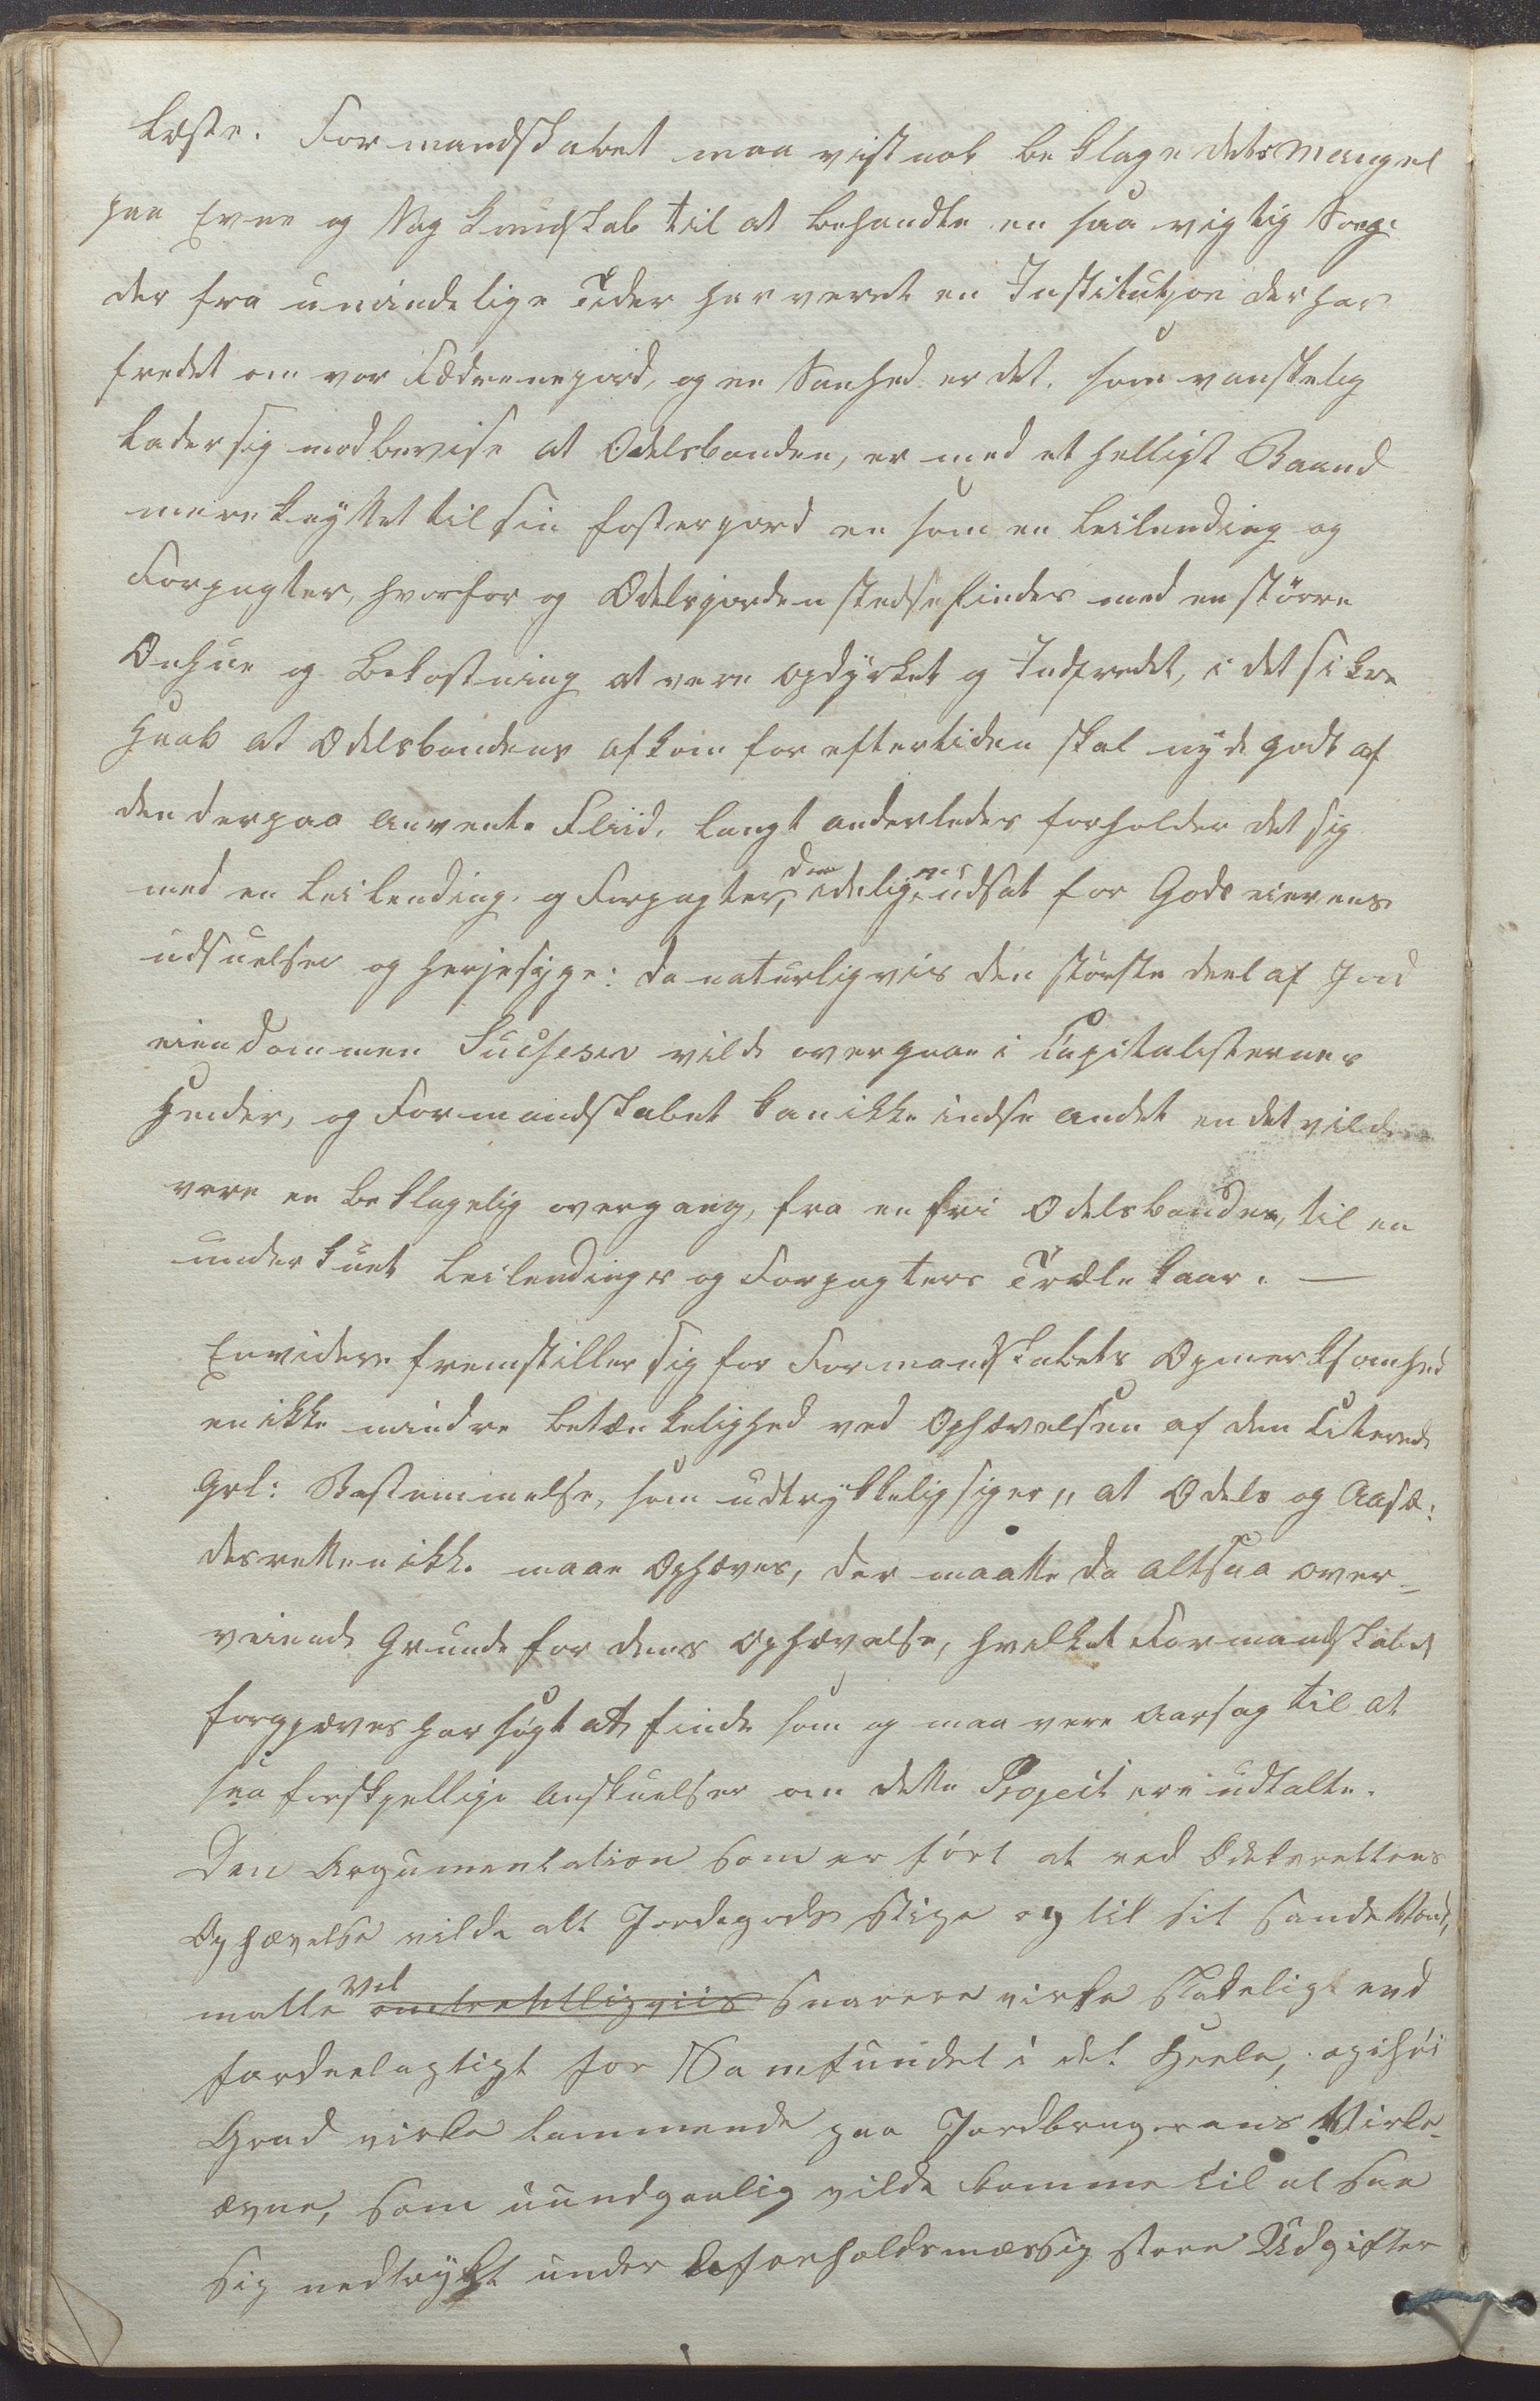 læste. Formandskabet maa vistnok beklage dets Mangel
paa Evne og Sagkundskab til at behandle en saa vigtig Sag:
der fra umindelige Tider har veret en Institutjon der har
fredet om vor Fædrenejord, og en Sanhed er det, som vanskelig
lader sig modbevise at Odelsbonden, er med et helligt Baand
mere knyttet til sin fosterjord en som en Leilending og
Forpagter, hvorfor og Odelsjorden stedse findes med en större
Omhue og Bekostning at vere opdyrket og Indfredet, i det sikre
Haab at Odelsbondens afkom for eftertiden skal nyde godt af
den derpaa anvente Fliid. Langt anderledes forholder det sig
med en Leilending og Forpagter, der idelig er udsat for Godseierens
udsuelser og herjesyge: da naturligvis den störste deel af Jord
eiendommen Sucsesiv vilde overgaae i Capitalisternes
Hender, og Formandskabet kan ikke indse andet en det vilde
vere en beklagelig overgang, fra en fri Odelsbonde, til en
underkuet Leilendings og Forpagters Trælekaar. —
Envidere fremstiller sig for Formandskabets Opmerksomhed
en ikke mindre betænkelighed ved Ophævelsen af den Citerede
Grl: Bestemmelse, som udtrykkelig siger „ at Odels og Aasæ:
desretten ikke maae Ophæves, der maatte da altsaa over-
veiende Grunde for dens Ophævelse, hvilket Formandskabet
forgjæves har sögt at finde som og maa vere Aarsag til at
saa forskjellige Anskuelser om dette Project ere udtalte.
Den Argumentation som er ført at ved Odelsrettens
Ophævelse vilde alt Jordegods stige og til sit sande Værd,
matte vel omtrentligviis snarere virke skadeligt end
fordeelagtigt for Samfundet i det Heele, og i høi
Grad virke lammende paa Jordbrugerens Virke-
ævne, som uundgaalig vilde komme til at see
sig nedtrykt under de forholdsmæssig store Udgifter